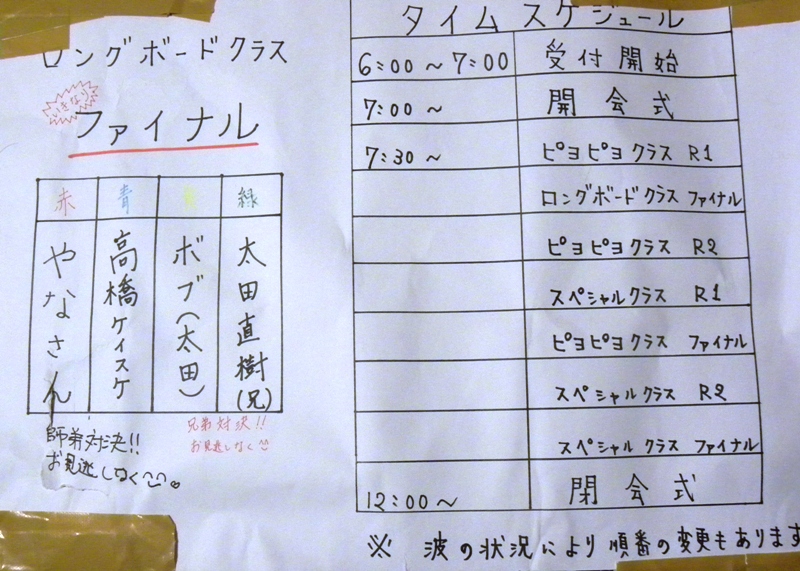 ロングボードクラス
いきなり
ファイナル
赤 青 黄 緑
やなさん
高橋ケイスケ
ボブ(太田)
太田直樹(兄)
師弟対決!!
お見逃しなく
兄弟対決!!
お見逃しなく
タイムスケジュール
6:00〜7:00 受付開始
7:00〜 開会式
7:30〜 ピヨピヨクラス R1
ロングボードクラス ファイナル
ピヨピヨクラス R2
スペシャルクラス R1
ピヨピヨクラス ファイナル
スペシャルクラス R2
スペシャルクラス ファイナル
12:00〜 閉会式
※ 波の状況により順番の変更もあります